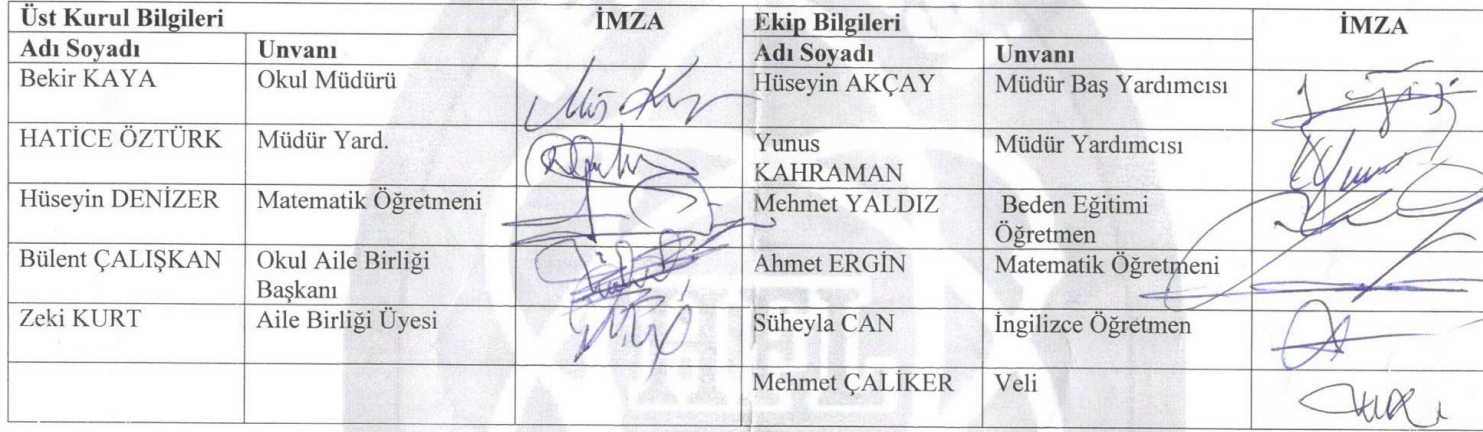 Üst Kurul Bilgileri İMZA Ekip Bilgileri İMZA
Adı Soyadı Unvanı Adı Soyadı Unvanı
Bekir KAYA Okul Müdürü Hüseyin AKÇAY Müdür Baş Yardımcısı
HATİCE ÖZTÜRK Müdür Yard. Yunus Müdür Yardımcısı
KAHRAMAN
Hüseyin DENİZER Matematik Öğretmeni Mehmet YALDIZ Beden Eğitimi
Öğretmen
Bülent ÇALIŞKAN Okul Aile Birliği Ahmet ERGİN Matematik Öğretmeni
Başkanı
Zeki KURT Aile Birliği Üyesi Süheyla CAN İngilizce Öğretmen
Mehmet ÇALİKER Veli